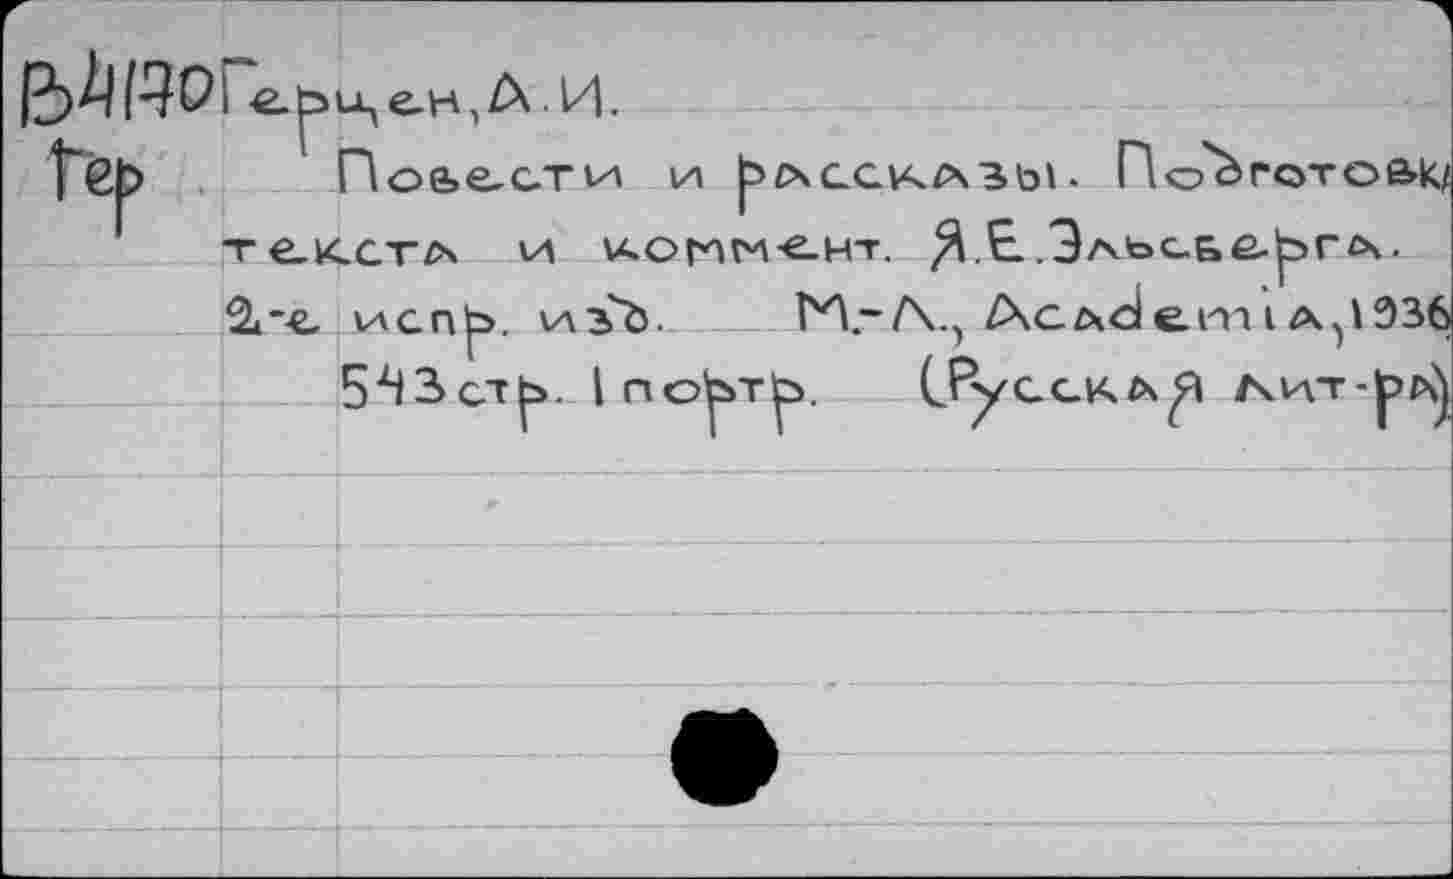 Герцен, А.И.
Гер Повести и рассказы. Подготовк
текста и коммент. Я.Е. Эльсберга.
2-е испр. изд. М.-Л., Academia, 1936
543 стр. 1 портр. (Русская лит-ра)